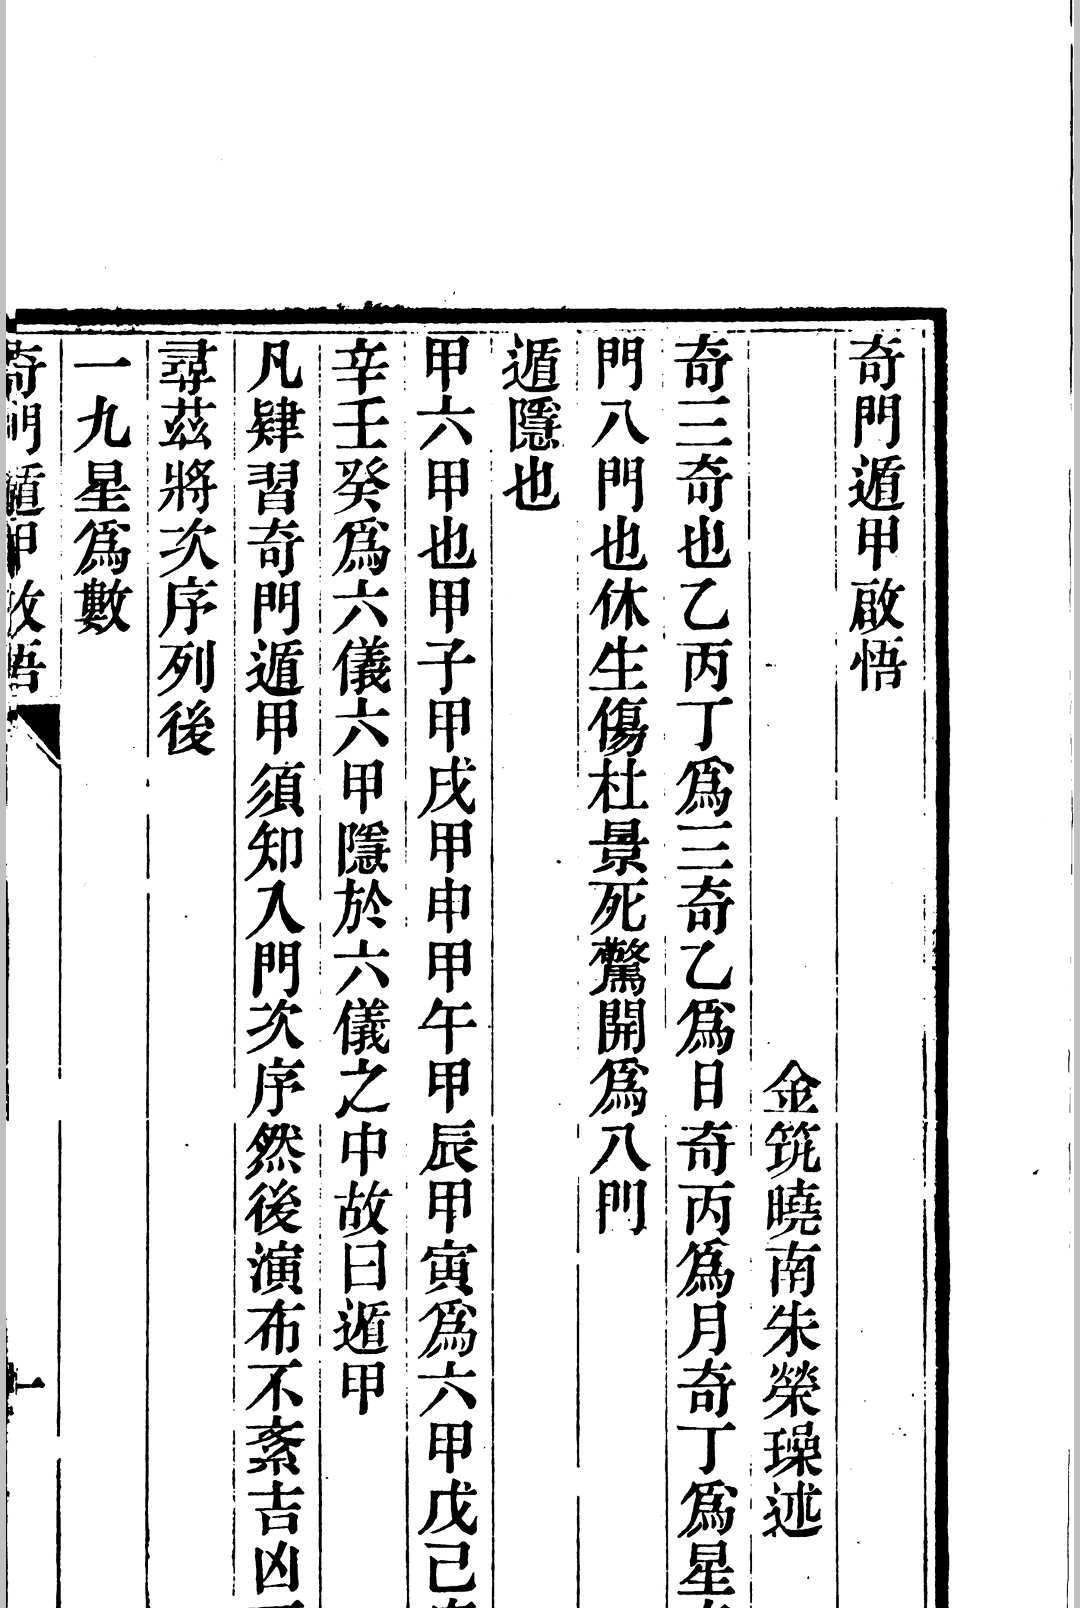 奇門遁甲啟悟
金筑曉南朱榮璪述
奇三奇也乙丙丁爲三奇乙爲日奇丙爲月奇丁爲星
門八門也休生傷杜景死驚開爲八門
遁隱也
甲六甲也甲子甲戌甲申甲午甲辰甲寅爲六甲戊己
辛壬癸爲六儀六甲隱於六儀之中故曰遁甲
凡肄習奇門遁甲須知入門次序然後演布不紊吉凶
尋茲將次序列後
一九星爲數
奇門遁甲啟悟
一